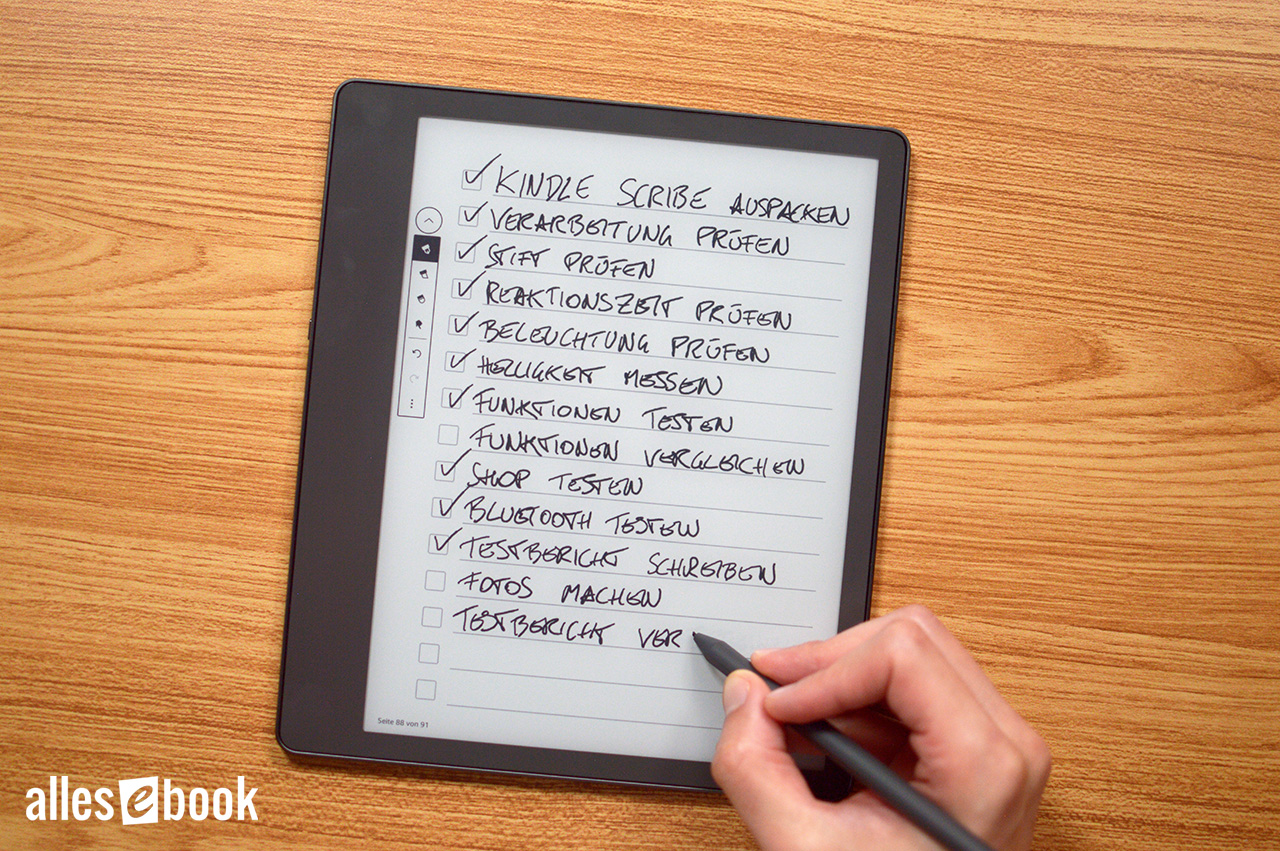 KINDLE SCRIBE AUSPACKEN
VERARBEITUNG PRÜFEN
STIFT PRÜFEN
REAKTIONSZEIT PRÜFEN
BELEUCHTUNG PRÜFEN
HELLIGKEIT MESSEN
FUNKTIONEN TESTEN
FUNKTIONEN VERGLEICHEN
SHOP TESTEN
BLUETOOTH TESTEN
TESTBERICHT SCHREIBEN
FOTOS MACHEN
TESTBERICHT VER
Seite 88 von 91
allesebook